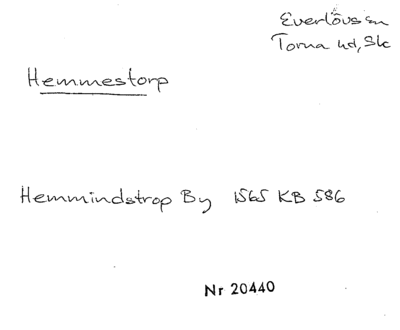 Everlövs sn
Torna hd, Sk
Hemmestorp
Hemmindstrop By 1565 KB 586
Nr 20440